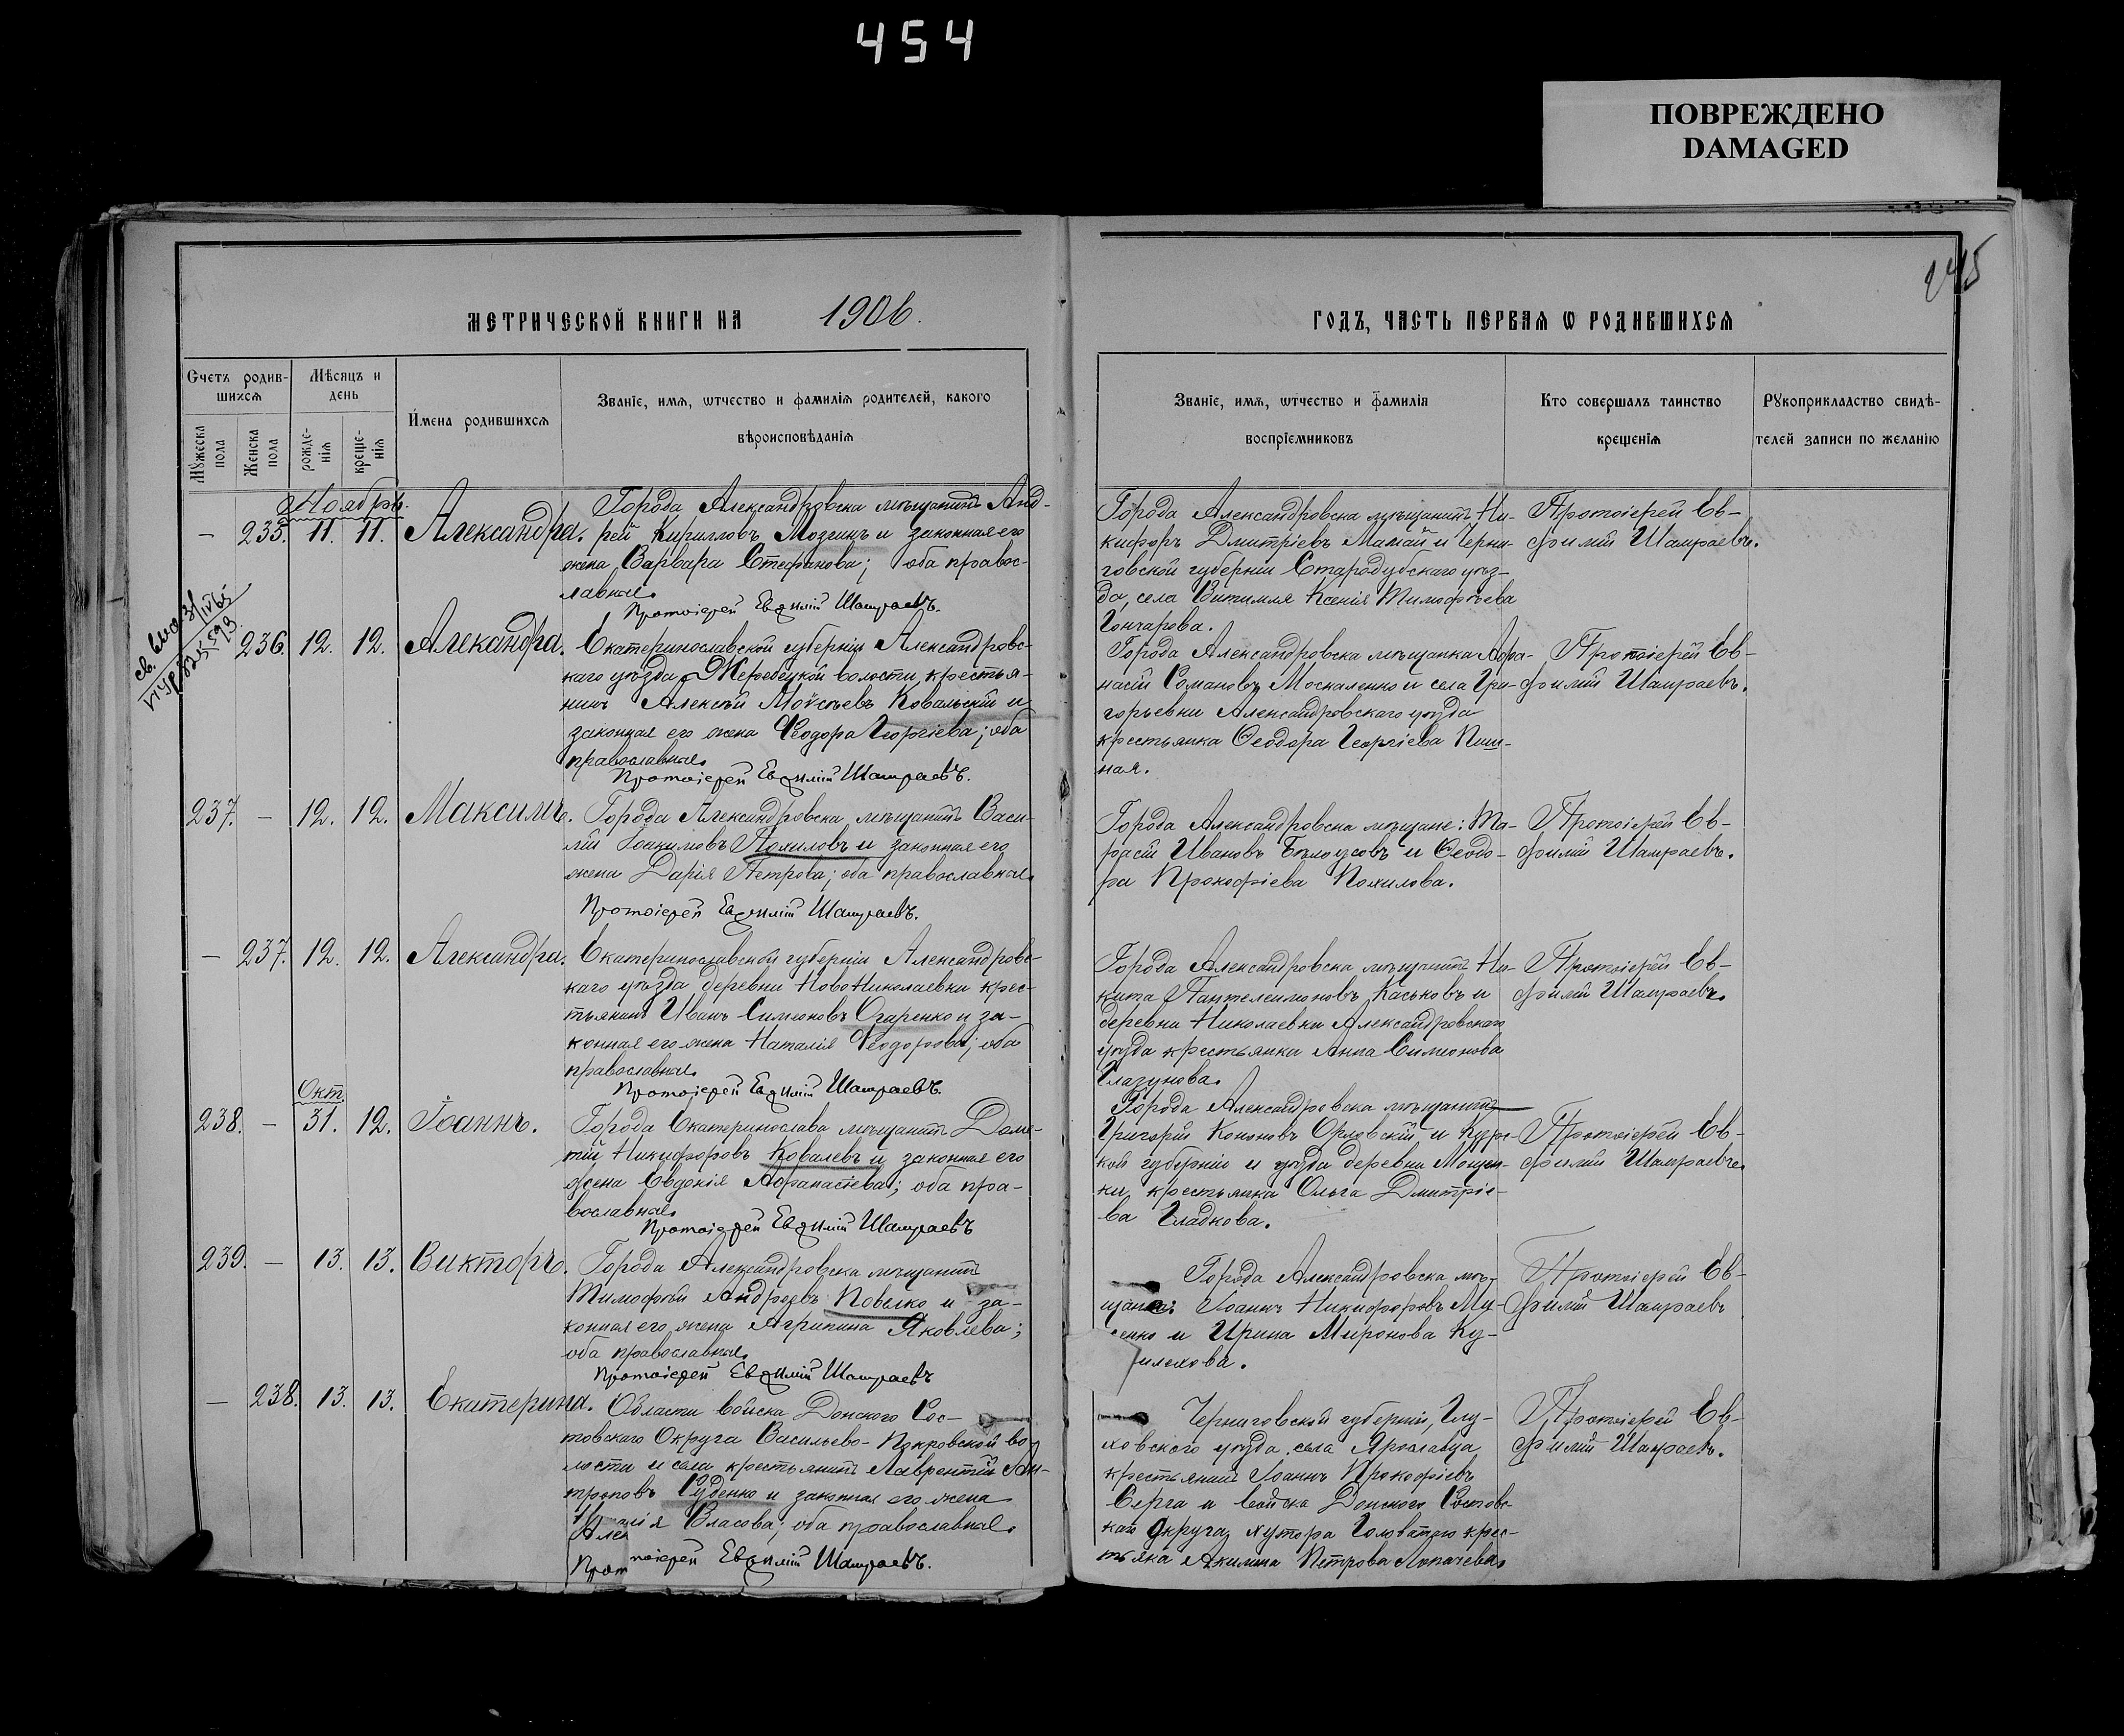 454
ПОВРЕЖДЕНО
DAMAGED
245
МЕТРИЧЕСКОЙ КНИГИ НА 1906.
ГОДЪ, ЧАСТЬ ПЕРВАЯ Ѡ РОДИВШИХСѦ
Счетъ родив-
шихсѧ
Мѣсяцъ и
день
Мꙋжеска
пола
Женска
пола
рожде-
нія
креще-
нія
Имена родившихсѧ
Званіе, имѧ, ѡтчество и фамилія родителей, какого
вѣроисповѣданія
Званіе, имѧ, ѡтчество и фамилія
воспріемниковъ
Кто совершалъ таинство
крещенія
Рꙋкоприкладство свидѣ-
телей записи по желанію
Ноябрь.
— 235. 11. 11. Александра.
Города Александровска мѣщанинъ Анд-
рей Кирилловъ Мозгинъ и законная его
жена Варвара Стефанова; оба правос-
лавные.
Протоіерей Евѳимій Шамраевъ.
Города Александровска мѣщанинъ Ни-
кифоръ Дмитріевъ Мамай и Черни-
говской губерніи Стародубскаго уѣз-
да, села Витимля Ксенія Тимофѣева
Гончарова.
Протоіерей Ев-
фимій Шамраевъ.
236. 12. 12. Алекандра.
Екатеринославской губерніи Александровс-
каго уѣзда Жеребецкой волости, крестья-
нинъ Алексѣй Моѵсеѣвъ Ковальскій и
законная его жена Ѳеодора Георгіева; оба
православные.
Протоіерей Евѳимій Шамраевъ.
Города Александровска мѣщанка Афа-
насій Романовъ Москаленко и села Гри-
горьевки Александровскаго уѣзда
крестьянка Ѳеодора Георгіева Пиш-
ная.
Протоіерей Ев-
фимій Шамраевъ.
237. — 12. 12. Максимъ.
Города Александровска мѣщанинъ Васи-
лій Іоакимовъ Похиловъ и законная его
жена Дарія Петрова; оба православные.
Протоіерей Евѳимій Шамраевъ.
Города Александровска мѣщане: Та-
расій Ивановъ Бѣлоусовъ и Ѳеодо-
ра Прокофіева Похилова.
Протоіерей Ев-
фимій Шамраевъ.
— 237. 12. 12. Александра.
Екатеринославской губерніи Александровс-
каго уѣзда деревни НовоНиколаевки крес-
тьянинъ Иванъ Симеоновъ Огаренко и за-
конная его жена Наталія Ѳеодорова; оба
православные.
Протоіерей Евѳимій Шамраевъ.
Города Александровска мѣщанинъ Ни-
кита Пантелеимоновъ Каськовъ и
деревни Николаевки Александровскаго
уѣзда крестьянка Анна Симеонова
Глазунова.
Протоіерей Ев-
фимій Шамраевъ.
Окт.
238. — 31. 12. Іоаннъ.
Города Екатеринослава мѣщанинъ Доме-
тій Никифоровъ Ковалевъ и законная его
жена Евдокія Афанасіева; оба пра-
вославные.
Протоіерей Евѳимій Шамраевъ
Города Александровска мѣщанинъ
Григорій Кононовъ Орловскій и Курс-
кой губерніи и уѣзда деревни
крестьянка Ольга Дмитріе-
ва Гладкова.
Протоіерей Ев-
фимій Шамраевъ.
239. — 13. 13. Викторъ.
Города Александровска мѣщанинъ
Тимофей Андреевъ и за-
конная его жена Агрипина Яковлева;
оба православные.
Протоіерей Евѳимій Шамраевъ
Города Александровска мѣ-
щане: Іоаннъ Никифоровъ
и Ирина Миронова
Протоіерей Ев-
фимій Шамраевъ
— 238. 13. 13. Екатерина.
Области Войска Донского Рос-
товскаго Округа Васильево-Покровской во-
лости и села крестьянинъ Лаврентій Ан-
троповъ Руденко и законная его жена
Власова; оба православные.
Протоіерей Евѳимій Шамраевъ.
Черниговской губерніи, Глу-
ховского уѣзда села Ярославца
крестьянинъ Іоаннъ Прокофіевъ
Серга и Войска Донского Ростовс-
каго Округа, хутора крес-
тьянка Акилина Петрова
Протоіерей Ев-
фимій Шамраевъ.